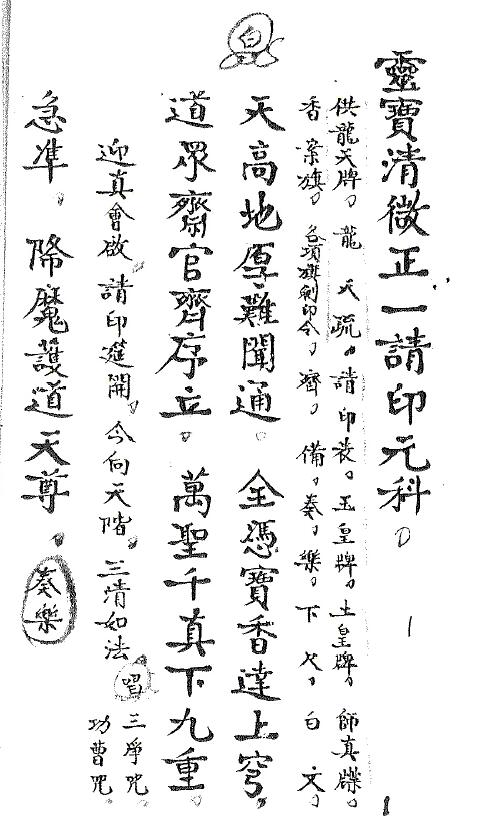 靈寶清微正一請印元科。
供龍天牌。龍天疏。請印表。玉皇牌。土皇牌。師真牒。
香案旗。各項旗劍印令。齊。備。奏。樂。下。欠。白文。
天高地厚難聞通。全憑寶香達上穹。
道眾齋官齊序立。萬聖千真下九重。
迎真會啟請印筵開。今向天階。三清如法 唱 三淨咒。功曹咒。
急準。降魔護道天尊。奏樂